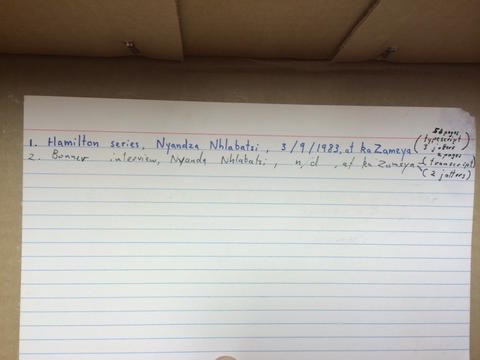 1. Hamilton series, Nyandza Nhlabatsi, 3/9/1983, at kaZameya (56 pages typescript) 3 jotters
2. Bonner interview, Nyanda Nhlabatsi, n,d, at ka Zameya pages transcript (2 jotters)